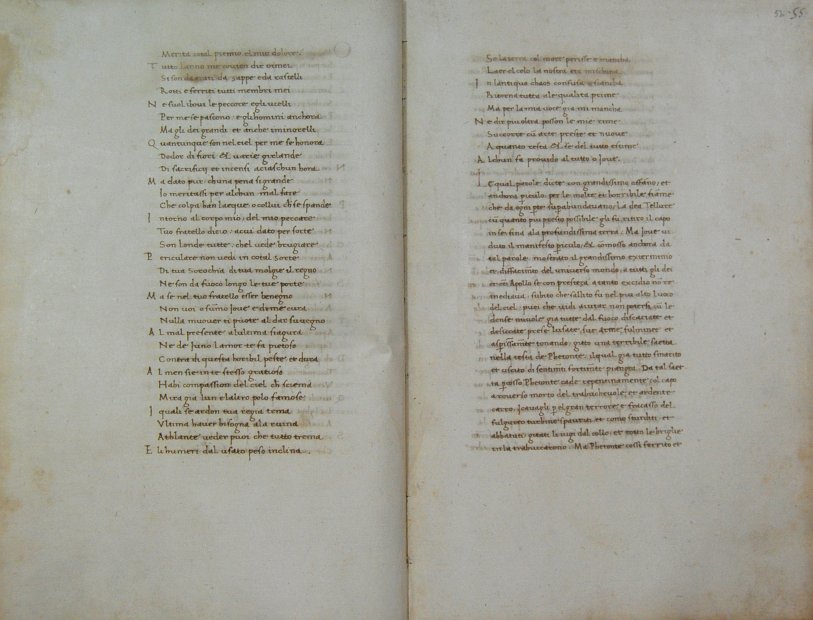 Merita cotal premio el mio dolore
Tutto lanno me convien che ormei
Si son da ararti da zappe e da rastelli
Rotti e feriti tutti membri mei
Ne fuol ibovi le peccore e gli ucelli
Per me se pascono e gli homini anchora
Ma gli dei grandi et anche i minorelli
Quantunque son nel ciel per me se honora
Dodor di fiori et varie girlande
Di sacrificij et incensi aciaschun hora
Ma dato pur chuna pena si grande
Io meritassi per alchun mal fare
Che colpa han lacque o collui ch se spande
Intorno al corpo mio del mio peccare
Tuo fratello dico acui dato per sorte
Son londe tutte chel vede brugiare
Perticulare non vedi in cotal sorte
Di tua Sorochia di tua molgie il regno
Ne son da fuoco longo le tue porte
Ma se nel tuo fratello esser benegno
Non voi o summo Jove e di me cura
Nulla muover ti puote al dar suvegno
Al mal presente alultima siagura
Ne de Juno lamor te fa pietoso
Contra di questa horribil peste et dura
Al men sie in te stesso gratioso
Habi compassion del ciel ch scierna
Mira gia lun e laltro polo famoso
I quali se ardon tua regia tema
Ultima haver bisogna a la ruina
Athlante veder puoi che tutto trema
E li humeri dal usato peso inclina
52 55
Se la terra col mare perisse e mancha
Laer el celo la nostra
In lantiquo chaos confusa e stancha
Ritorna tutta a le qualita prime
Ma per la mia voce gia mi mancha
Ne dir piu oltra posson le mie rime
Succorre cum arte preste et nuove
A quanto resta et se del tutto estime
Alchun fa provido al tutto o Jove
E qual parole dicte con grandissimo affano et
ardente piculo per le molte et horribile fiame
che da ogni pte supabundavano La dea Tellure
cu quanto piu presto possibile gli fu ritiro il capo
in se fina ala profundissima terra. Ma Jove ve
duto il manifesto piculo et comosso anchora da
tal parole mostrato il grandissimo exterminio
et disfacimto del universo mondo a tutti gli dei
et con Apollo se con presteça a tanto excidio no re
mediava subito che sallito fu nel piu alto luoco
del ciel puoi che vidi aiutar non potersi cu le
dense nuvole gia tutte dal fuoco discaciate et
desicate prese lusate sue arme fulminee et
aspissamte tonando gitto una terribile saetta
nella testa de Phetonte il qual gia tutto smarito
et uscito di sentim fortunte piangea. Da tal saet
ta posso Phetonte cade repentinamente col capo
a roverso morto del trabuchevole et ardente
carro. I cavagli pel gran terrore e fracasso del
fulgurto turbine spaventi et como storditi et
abbatuti gitati li iugi dal collo et rotti le briglie
in la trabuccarono. Ma Phetonte cossi ferrito et